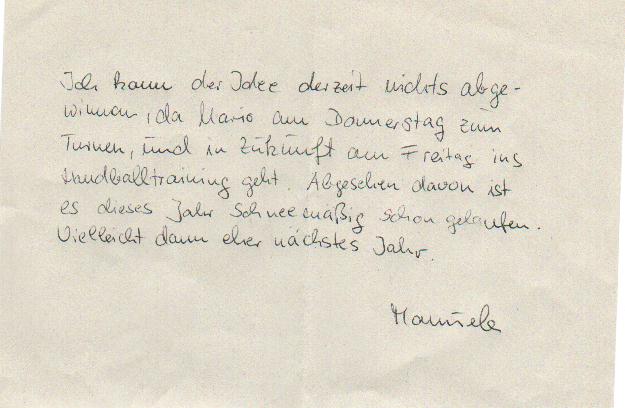 Ich kann der Idee derzeit nichts abge-
winnen, da Mario am Donnerstag zum
Turnen, und in Zukunft am Freitag ins
Handballtraining geht. Abgesehen davon ist
es dieses Jahr schneemäßig schon gelaufen.
Vielleicht dann eher nächstes Jahr.
Manuela